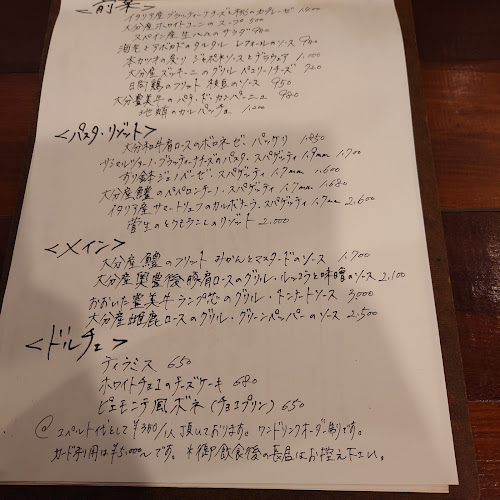 <前菜>
イタリア産ブラッティーナチーズと桃のカプレーゼ 1,600
大分産ホワイトコーンのスープ 500
スペイン産生ハムのサラダ 980
海老とアボカドのタルタル レフォールのソース 980
本カツオの炙り ジャポネソースとグラウェア 1,000
大分産ズッキーニのグリル ペコリーノチーズ 720
日向鶏のフリット 枝豆のソース 950
大分豊美牛のパテ・ド・カンパーニュ 980
地蛸のカルパッチョ 1,200
<パスタ・リゾット>
大分和牛肩ロースのボロネーゼ・パッケリ 1,850
ブラッティーナチーズのパスタ・スパゲッティ 1.9mm 1,700
ジェノベーゼ・スパゲッティ 1.9mm 1,600
大分産鱧のペペロンチーノ・スパゲティ 1.7mm 1,680
イタリア産サマートリュフのカルボナーラ・スパゲッティ 1.7mm 2,600
菅生のとうもろこしのリゾット 2,000
<メイン>
大分産鱧のフリット みかんとマスタードのソース 1,700
大分産奥豊後豚肩ロースのグリル・ルッコラと味噌のソース 2,100
おおいた豊美牛ランプ芯のグリル・トンナートソース 3,000
大分産雌鹿ロースのグリル・グリーンペッパーのソース 2,500
<ドルチェ>
ティラミス 650
ホワイトチョコのチーズケーキ 680
ピエモンテ風ボネ(チョコプリン) 650
@コペルト代として¥330/1人頂いております。ワンドリンクオーダー制です。
カード利用は¥5,000〜です。*御飲食後の長居はお控え下さい。